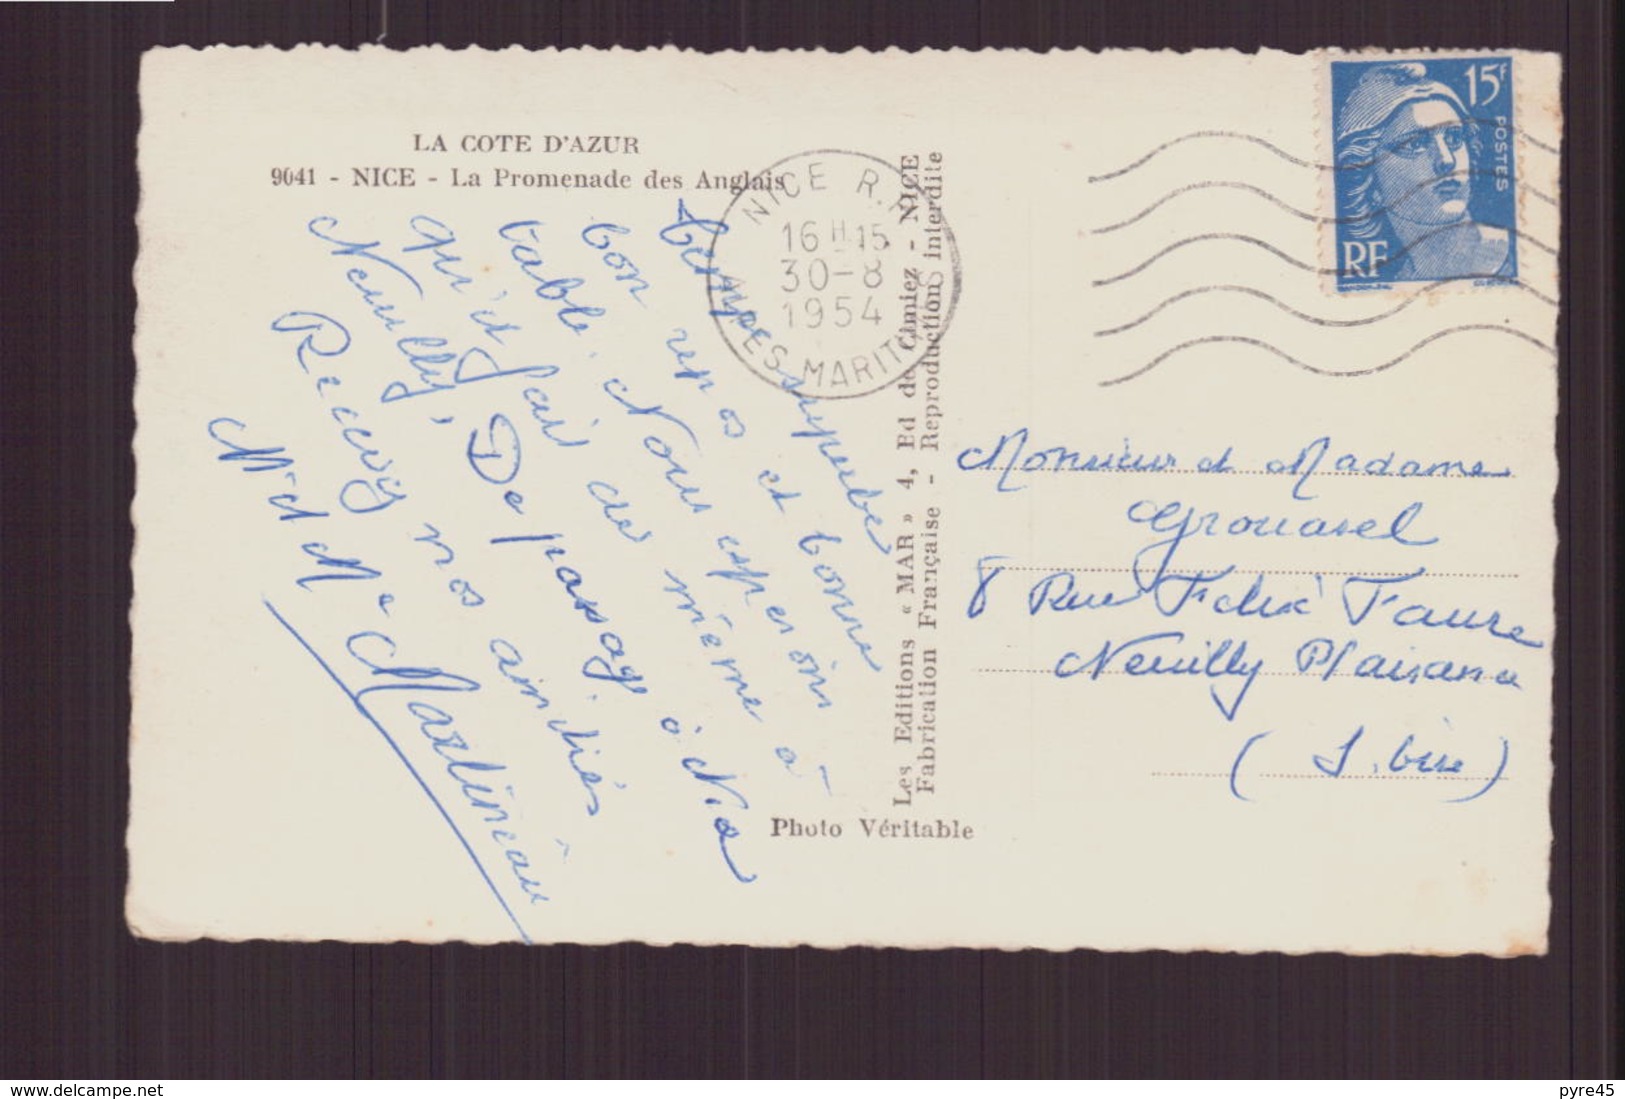 LA COTE D'AZUR
9041 - NICE - La Promenade des Anglais
Temps superbe
bon repos et bonne
table. Nous espérons
qu'il fait de même à
Neuilly, De passage à Nice
Recevez nos amitiés
Mr et Me Martineau
NICE R.P.
16H15
30-8
1954
ALPES MARITIMES
Les Editions « MAR » 4, Ed de Cimiez - NICE
Fabrication Française - Reproduction interdite
Photo Véritable
15f
POSTES
RF
Monsieur et Madame
Grouasel
8 Rue Felix Faure
Neuilly Plaisance
( S. Oise )
www.delcampe.net
pyre45